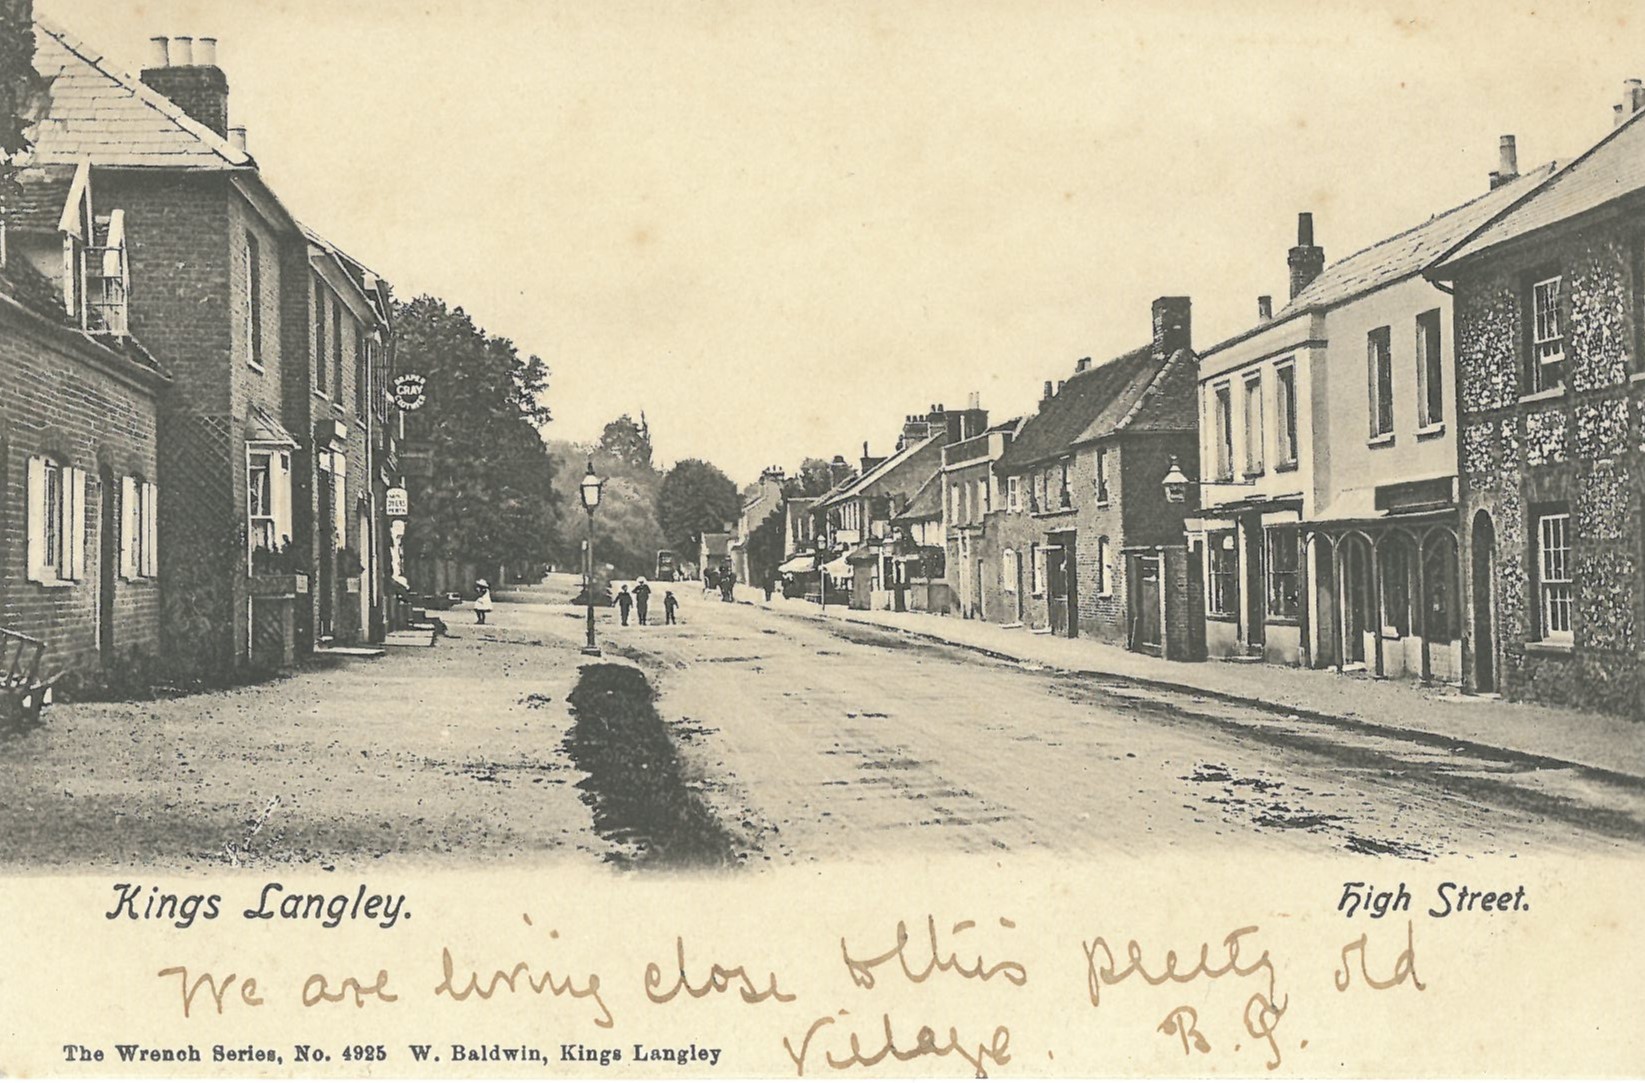 DRAPER
GRAY
Kings Langley.
High Street.
We are living close to this pretty old
village. B. G.
The Wrench Series, No. 4925 W. Baldwin, Kings Langley